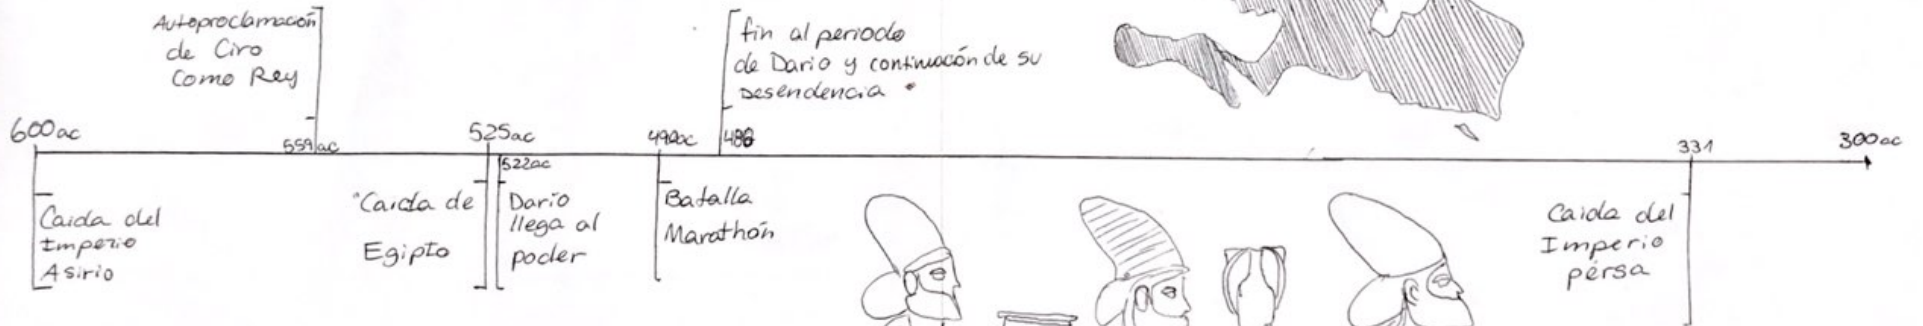 Autoproclamación
de Ciro
Como Rey
fin al periodo
de Dario y continuacón de su
Desendencia
600ac
559 ac
525ac
522ac
490ac
486
331
300ac
Caida del
Imperio
Asirio
Caida de
Egipto
Dario
llega al
poder
Batalla
Marathón
Caida del
Imperio
pérsa